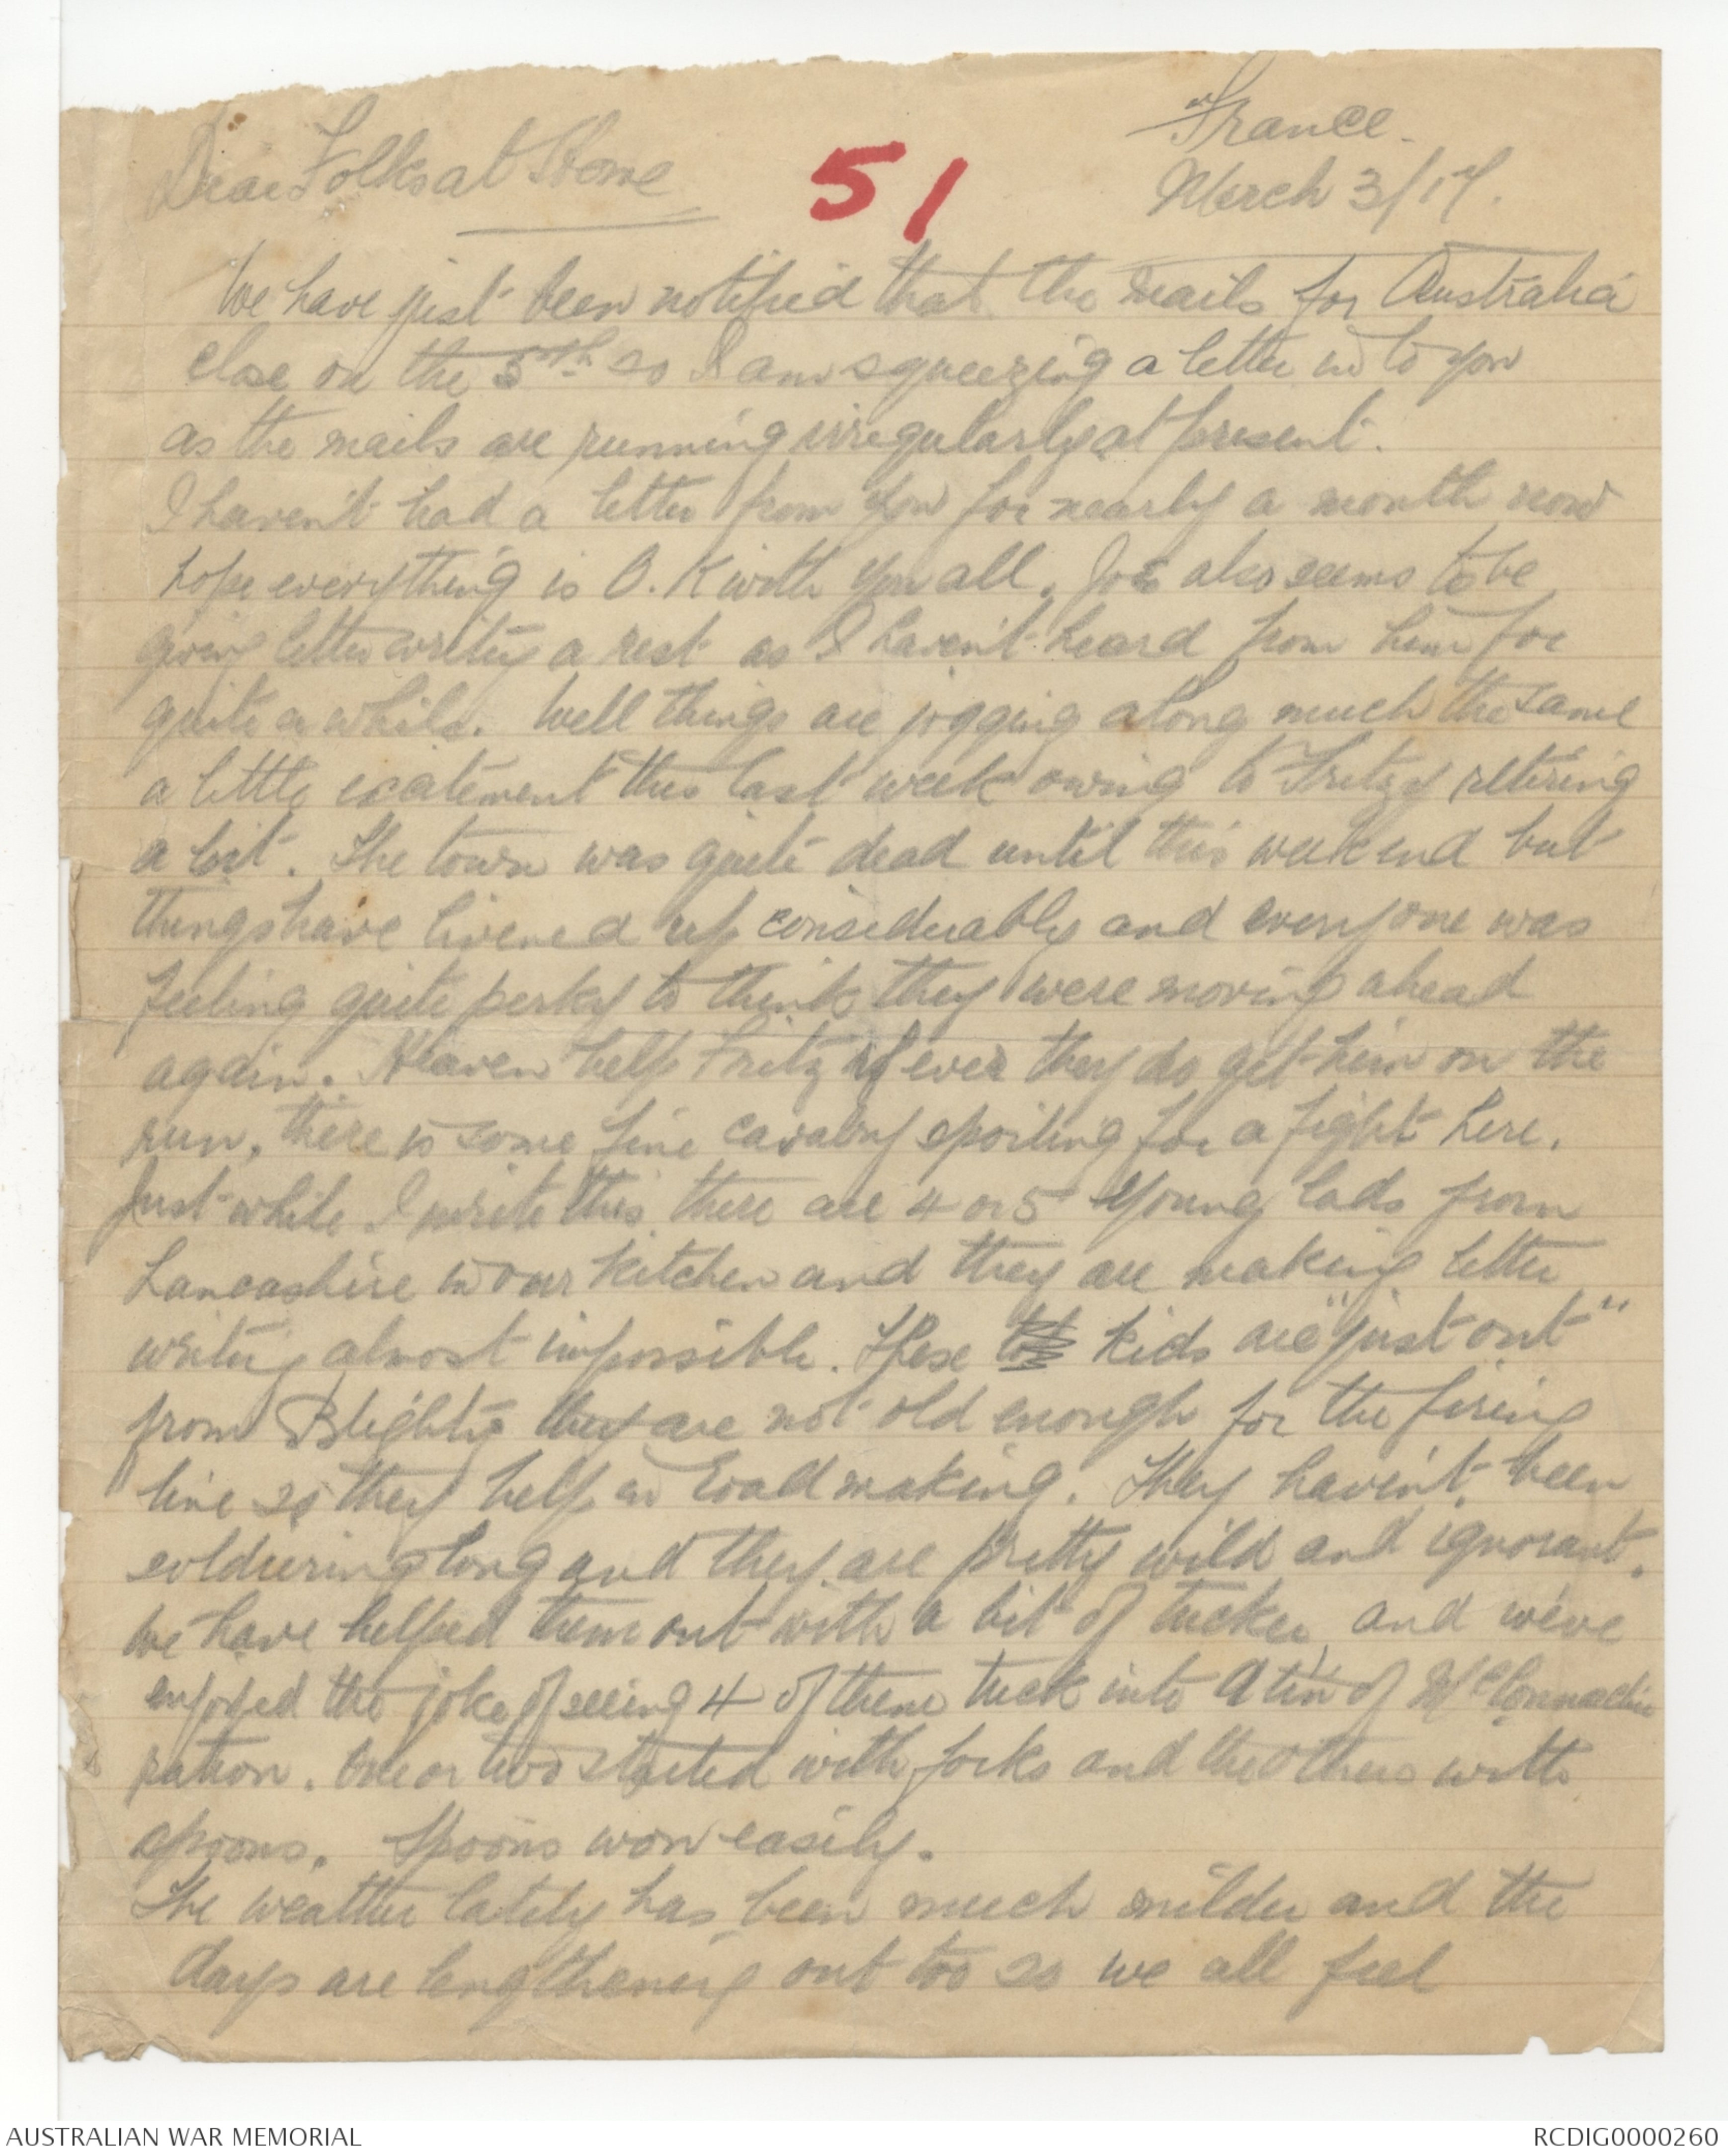 France.
March 3/17.
Dear Folks at Home
51
We have just been notified that the mails for Australia
close on the 5th so I am squeezing a letter in to you
as the mails are running irregularly at present.
I haven't had a letter from you for nearly a month now
hope everything is O.K with you all. Joe also seems to be
giving letter writing a rest as I haven't heard from him for
quite a while. Well things are jogging along much the same
a little excitement this last week owing to Fritzy retiring
a bit. The town was quite dead until this week end but
things have livened up considerably and everyone was
feeling quite perky to think they were moving ahead
again. Heaven help Fritz if ever they do get him on the
run, there is some fine cavalry spoiling for a fight here.
Just while I write this there are 4 or 5 young lads from
Lancashire in our kitchen and they are making letter
writing almost impossible. These kids are "just out"
from Blighty they are not old enough for the firing
line so they help in road making. They haven't been
soldiering long and they are pretty wild and ignorant.
We have helped them out with a bit of tucker and we've
enjoyed the joke of seeing 4 of them tuck into a tin of McConnachie
ration. One or two started with forks and the others with
spoons. Spoons won easily.
The weather lately has been much milder and the
days are lengthening out too so we all feel
AUSTRALIAN WAR MEMORIAL
RCDIG0000260